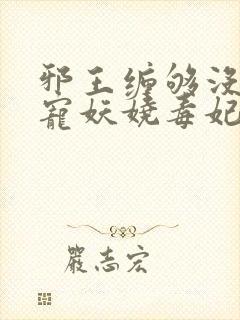 邪王缠够没
寵妖娆毒妃
嚴志宏